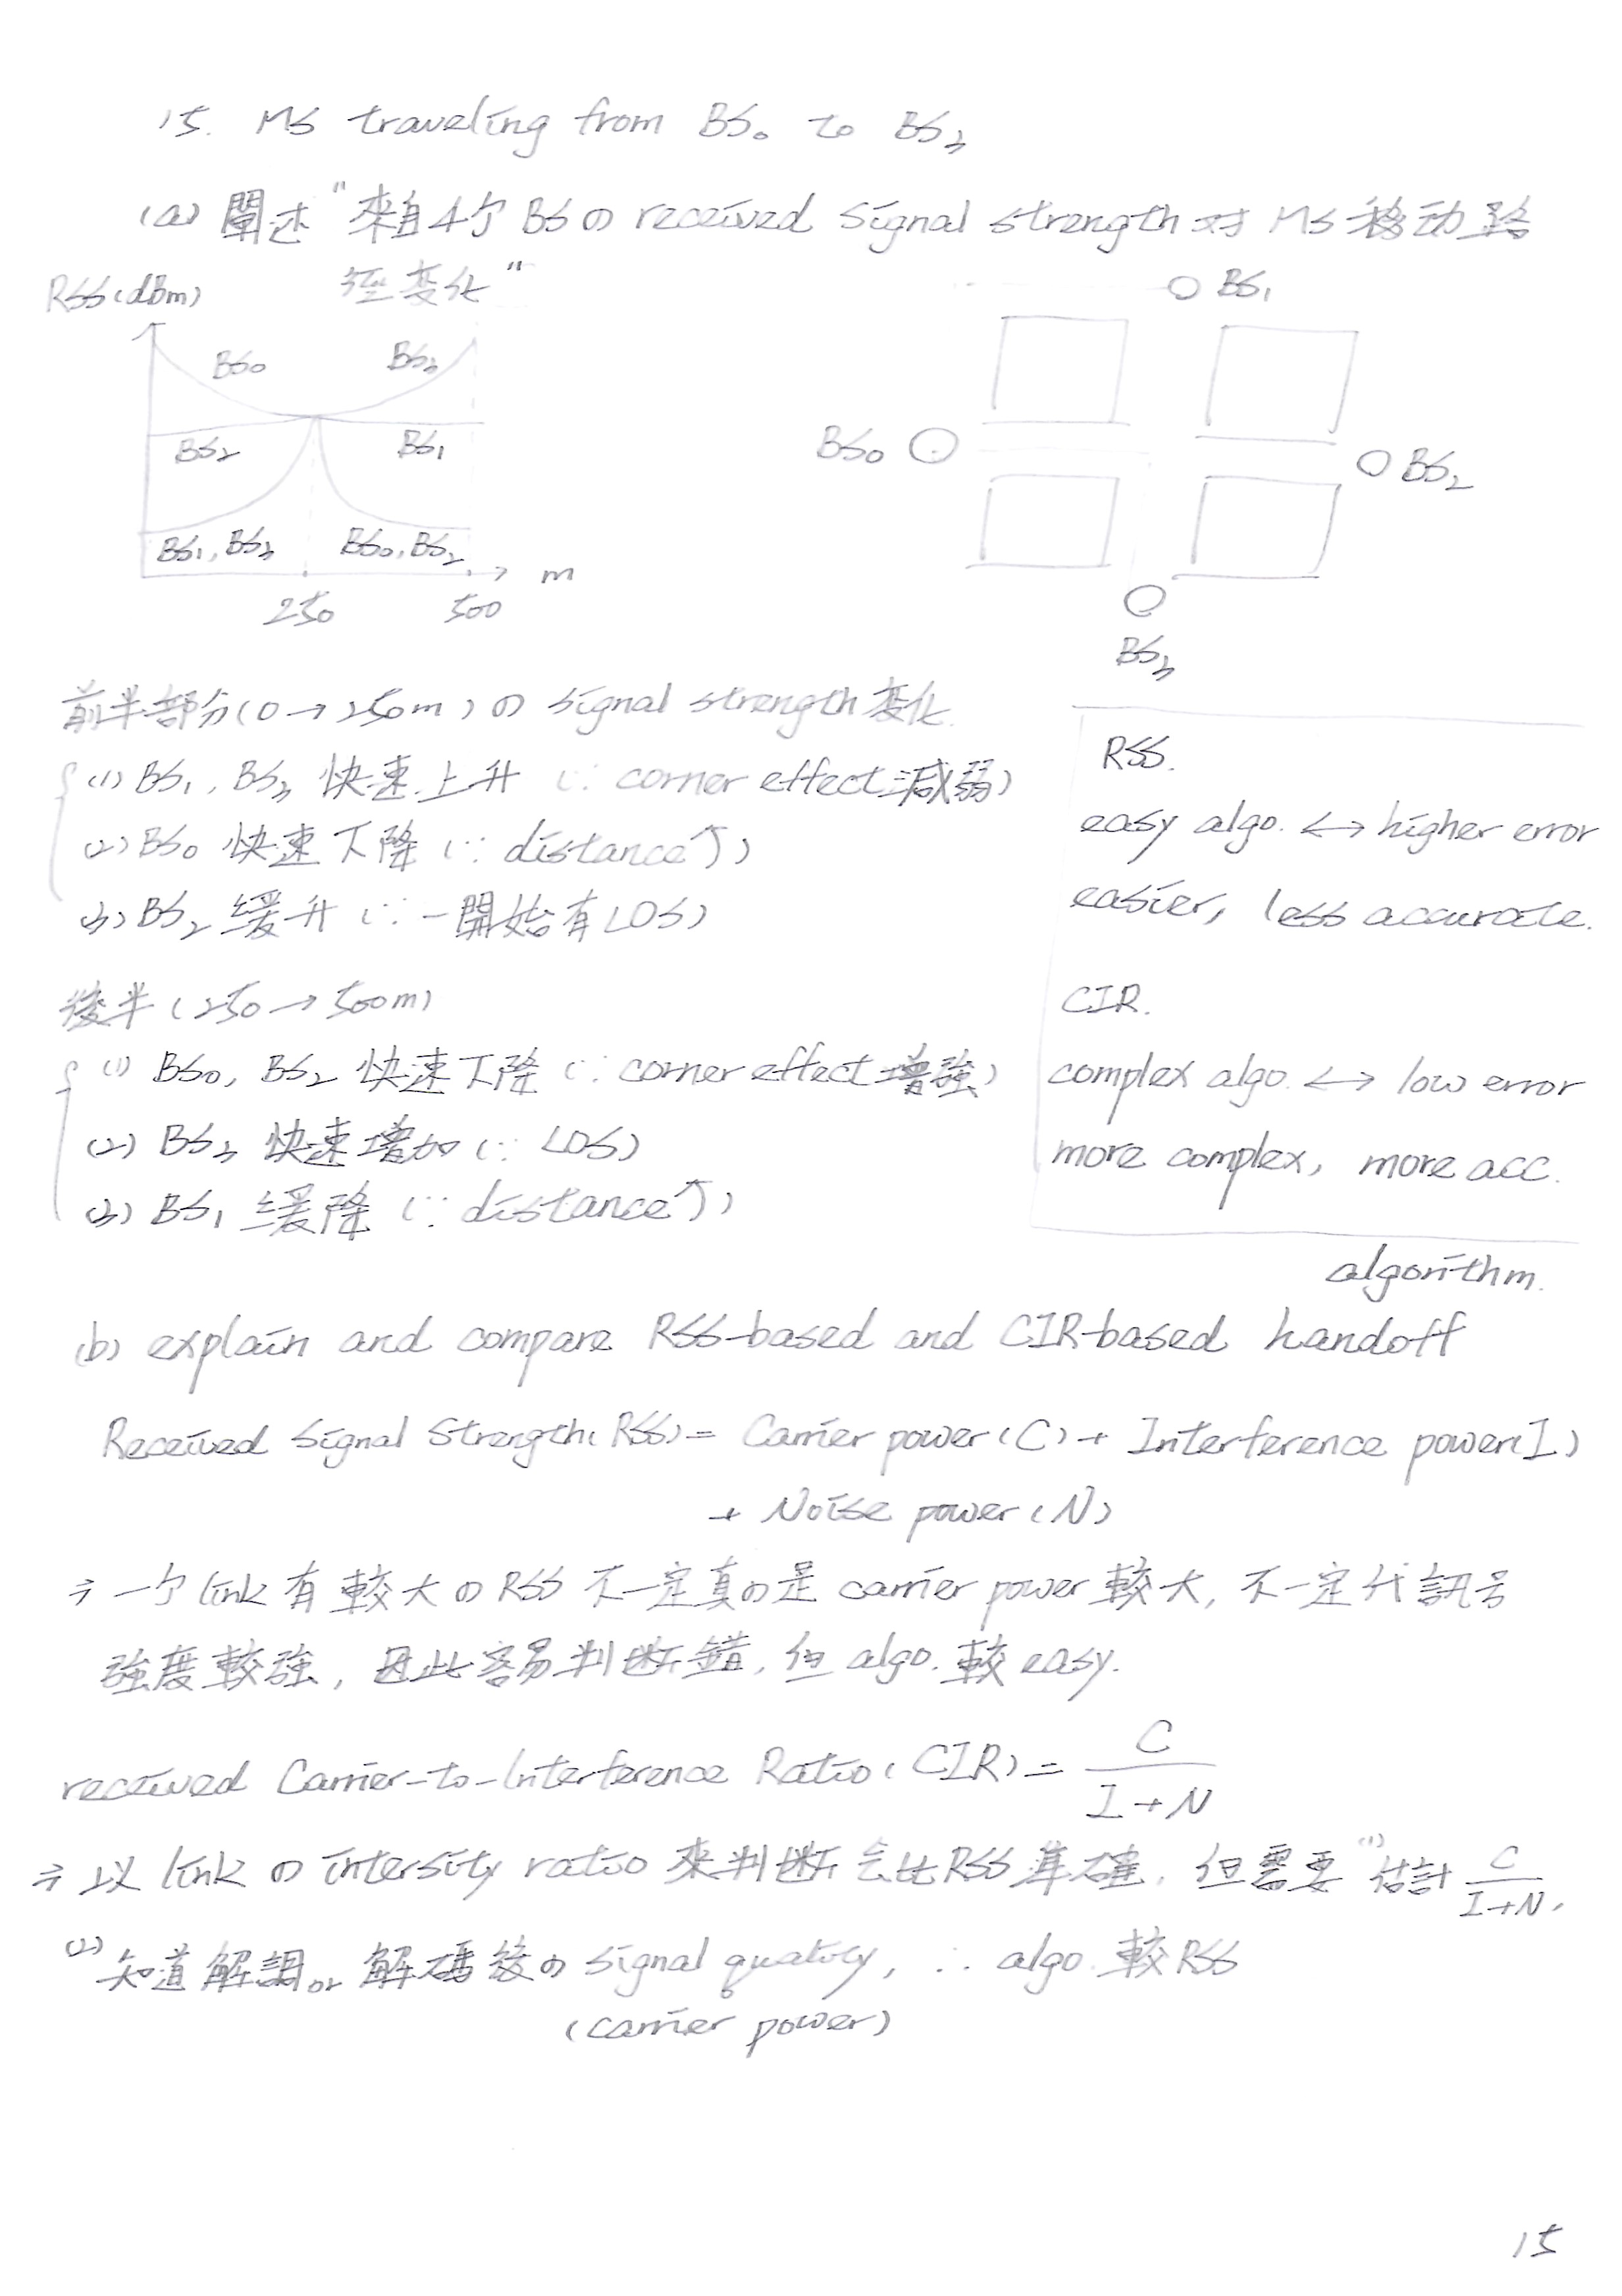 15. MS traveling from BS₀ to BS₃
(a) 闡述"來自4个BSの received signal strength 对 MS 移动路
徑变化"
RSS(dBm)
BS₀ BS₃
BS₂ BS₁
BS₁, BS₃ BS₀, BS₂
m
250 500
BS₁
BS₀
BS₂
BS₃
前半部分(0→250m)の signal strength 变化.
(1) BS₁, BS₃ 快速上升 (∵ corner effect 減弱)
(2) BS₀ 快速下降 (∵ distance↑)
(3) BS₂ 緩升 (∵ 一開始有LOS)
後半(250→500m)
(1) BS₀, BS₂ 快速下降 (∵ corner effect 增強)
(2) BS₃ 快速增加 (∵ LOS)
(3) BS₁ 緩降 (∵ distance↑)
RSS.
easy algo. ↔ higher error
easier, less accurate.
CIR.
complex algo. ↔ low error
more complex, more acc.
algorithm.
(b) explain and compare RSS-based and CIR-based handoff
Received Signal Strength(RSS) = Carrier power(C) + Interference power(I)
+ Noise power(N)
⇒ 一个link有較大のRSS不一定真の是 carrier power 較大, 不一定代訊号
強度較強, 因此容易判断錯, 但 algo. 較 easy.
received Carrier-to-Interference Ratio(CIR) = C/(I+N)
⇒ 以 link の intersity ratio 來判断会比RSS準確, 但需要 (1) 估計 C/(I+N),
(2) 知道解調or解碼後の signal quality, ∴ algo. 較RSS
(carrier power)
15